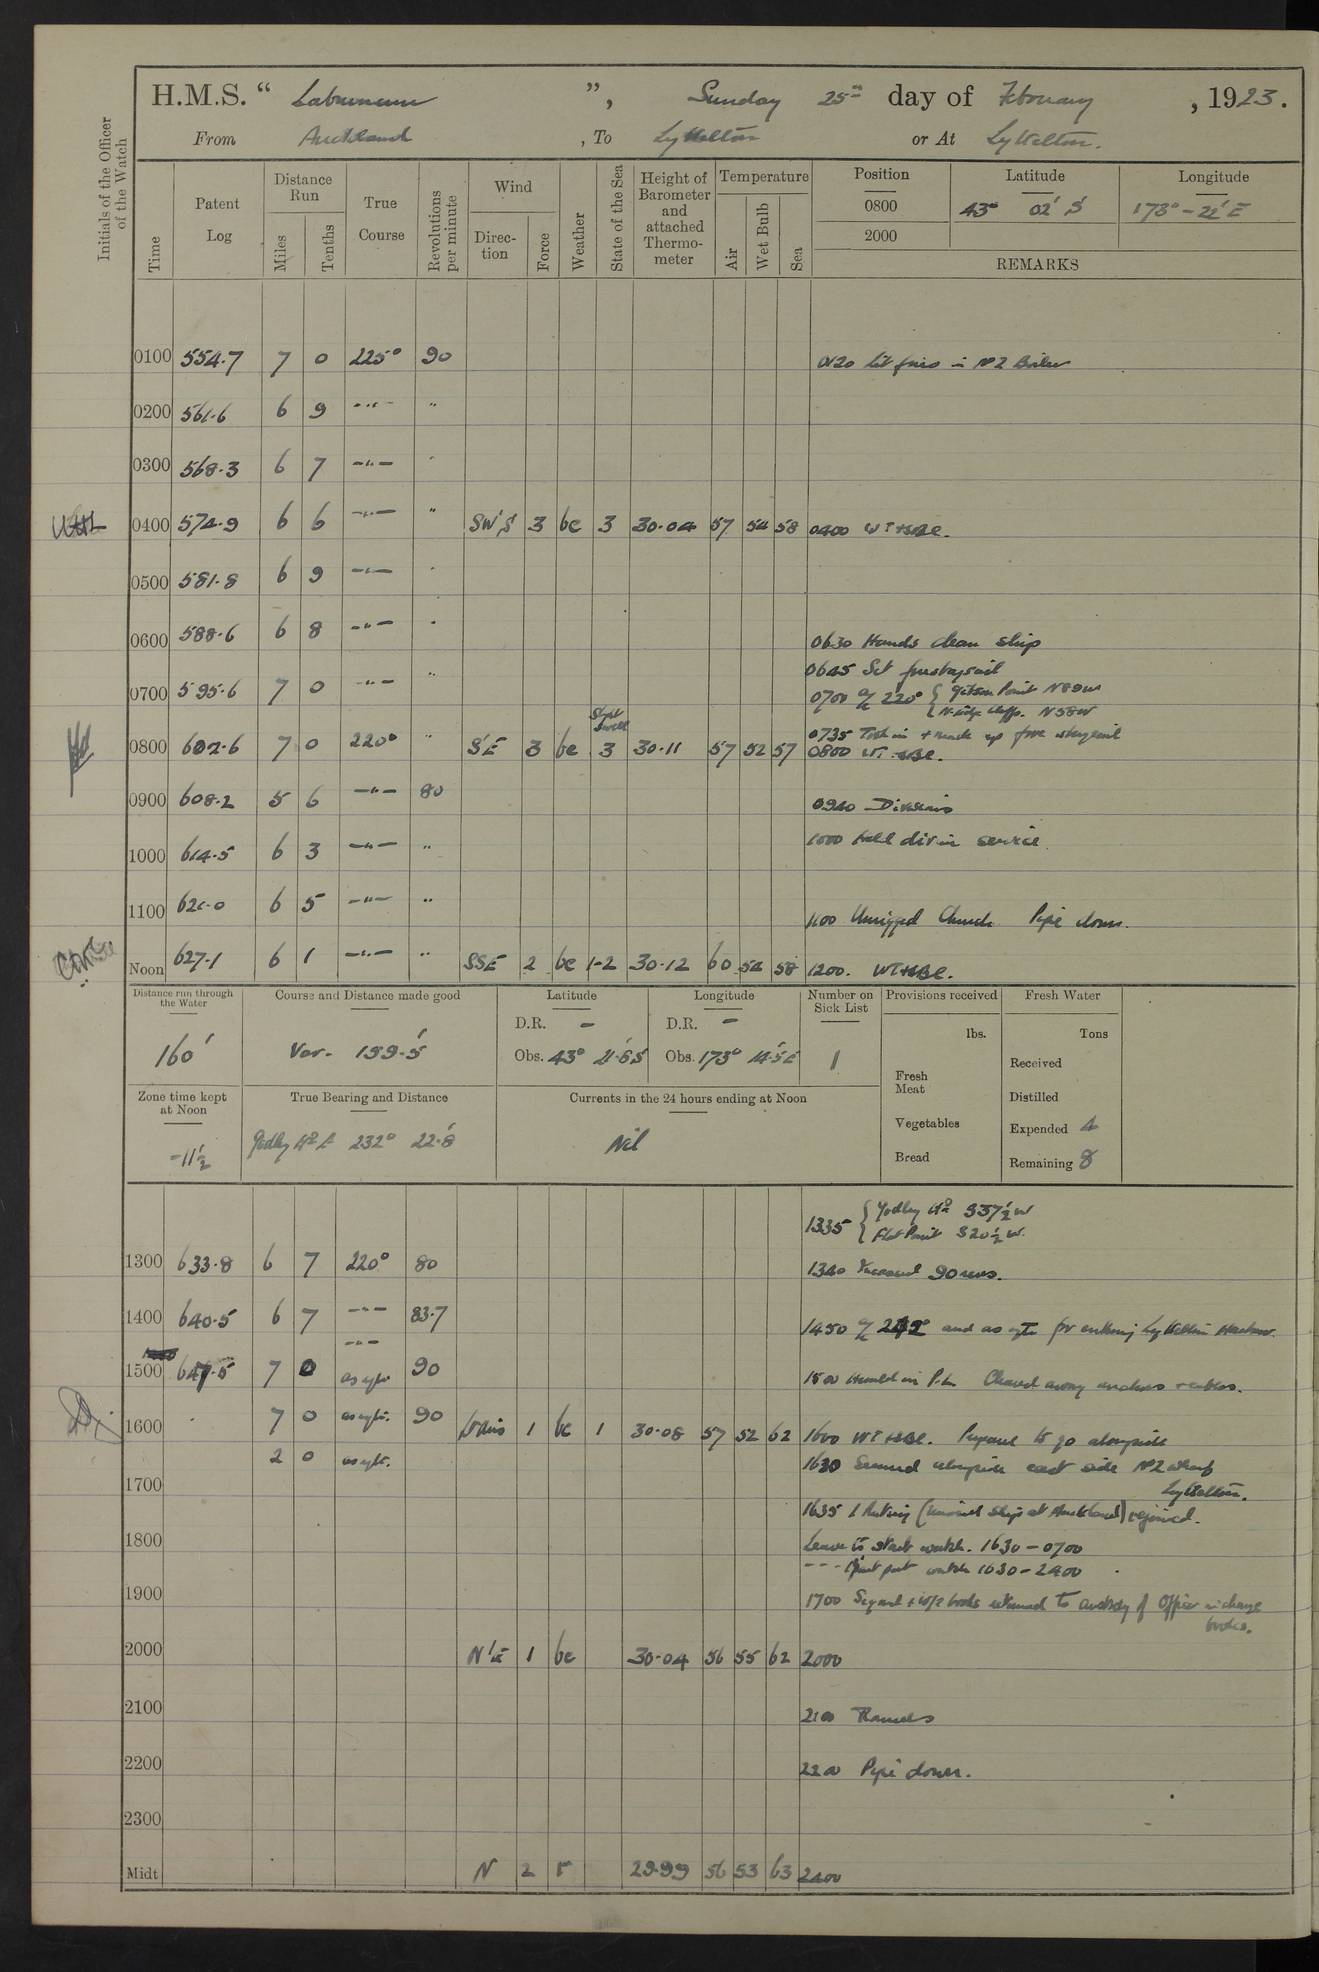 H.M.S. “ Laburnum ”, Sunday 25th day of February, 1923.
From Auckland, To Lyttelton or At Lyttelton.
Initials of the Officer of the Watch
Time Patent Log Distance Run Miles Tenths True Course Revolutions per minute Wind Direction Force Weather State of the Sea Height of Barometer and attached Thermometer Temperature Air Wet Bulb Sea Position Latitude Longitude
0800 43° 02' S 173°-22' E
2000
REMARKS
0100 554.7 7 0 225° 90 0120 Lit fires in No 2 Boiler
0200 561.6 6 9 -"- "
0300 568.3 6 7 -"- "
0400 574.9 6 6 -"- " SW'S 3 bc 3 30.04 57 54 58 0400
0500 581.8 6 9 -"- "
0600 588.6 6 8 -"- "
0630 Hands clean ship
0645 Set forestaysail
0700 595.6 7 0 -"- " 0700 a/c 220° { Gibson Point N89W
{ N. edge Cliffs. N58W
Slight Swell
0735 Took in + made up fore staysail
0800 602.6 7 0 220° " S'E 3 bc 3 30.11 57 52 57 0800
0900 608.2 5 6 -"- 80 0940 Divisions
1000 614.5 6 3 -"- " 1000 Held divine service.
1100 621.0 6 5 -"- " 1100 Unrigged Church Pipe down.
Noon 627.1 6 1 -"- " SSE 2 bc 1-2 30.12 60 54 58 1200.
Distance run through the Water Course and Distance made good Latitude Longitude Number on Sick List Provisions received Fresh Water
D.R. - D.R. - lbs. Tons
160' Var. 159.5' Obs. 43° 21.6 S Obs. 173° 14.5 E 1 Received
Fresh Meat
Zone time kept at Noon True Bearing and Distance Currents in the 24 hours ending at Noon Distilled
Vegetables Expended 4
-11½ Godley Hd Lt 232° 22.8' Nil
Bread Remaining 8
1335 { Godley Hd S37½W
{ Flat Point S20½W.
1300 633.8 6 7 220° 80 1340 Increased 90 revs.
1400 640.5 6 7 -"- 83.7
-"- 1450 a/c 242° and as req. for entering Lyttelton Harbour.
1500 647.5 7 0 as req. 90 1500 Hauled in P.L. Cleared away anchors + cables.
1600 7 0 as req. 90 Vairs 1 bc 1 30.08 57 52 62 1600 Prepare to go alongside
2 0 as req. 1630 Secured alongside east side No 2 wharf
1700 Lyttelton.
1635 1 Rating (missed ship at Auckland) rejoined.
1800 Leave to start watch. 1630-0700
--- first part watch 1630-2400
1900 1700 Signal + W/T books returned to custody of Officer in charge books.
2000 N'E 1 bc 30.04 56 55 62 2000
2100 2100 Rounds
2200 2200 Pipe down.
2300
Midt N 2 r 29.99 56 53 63 2400